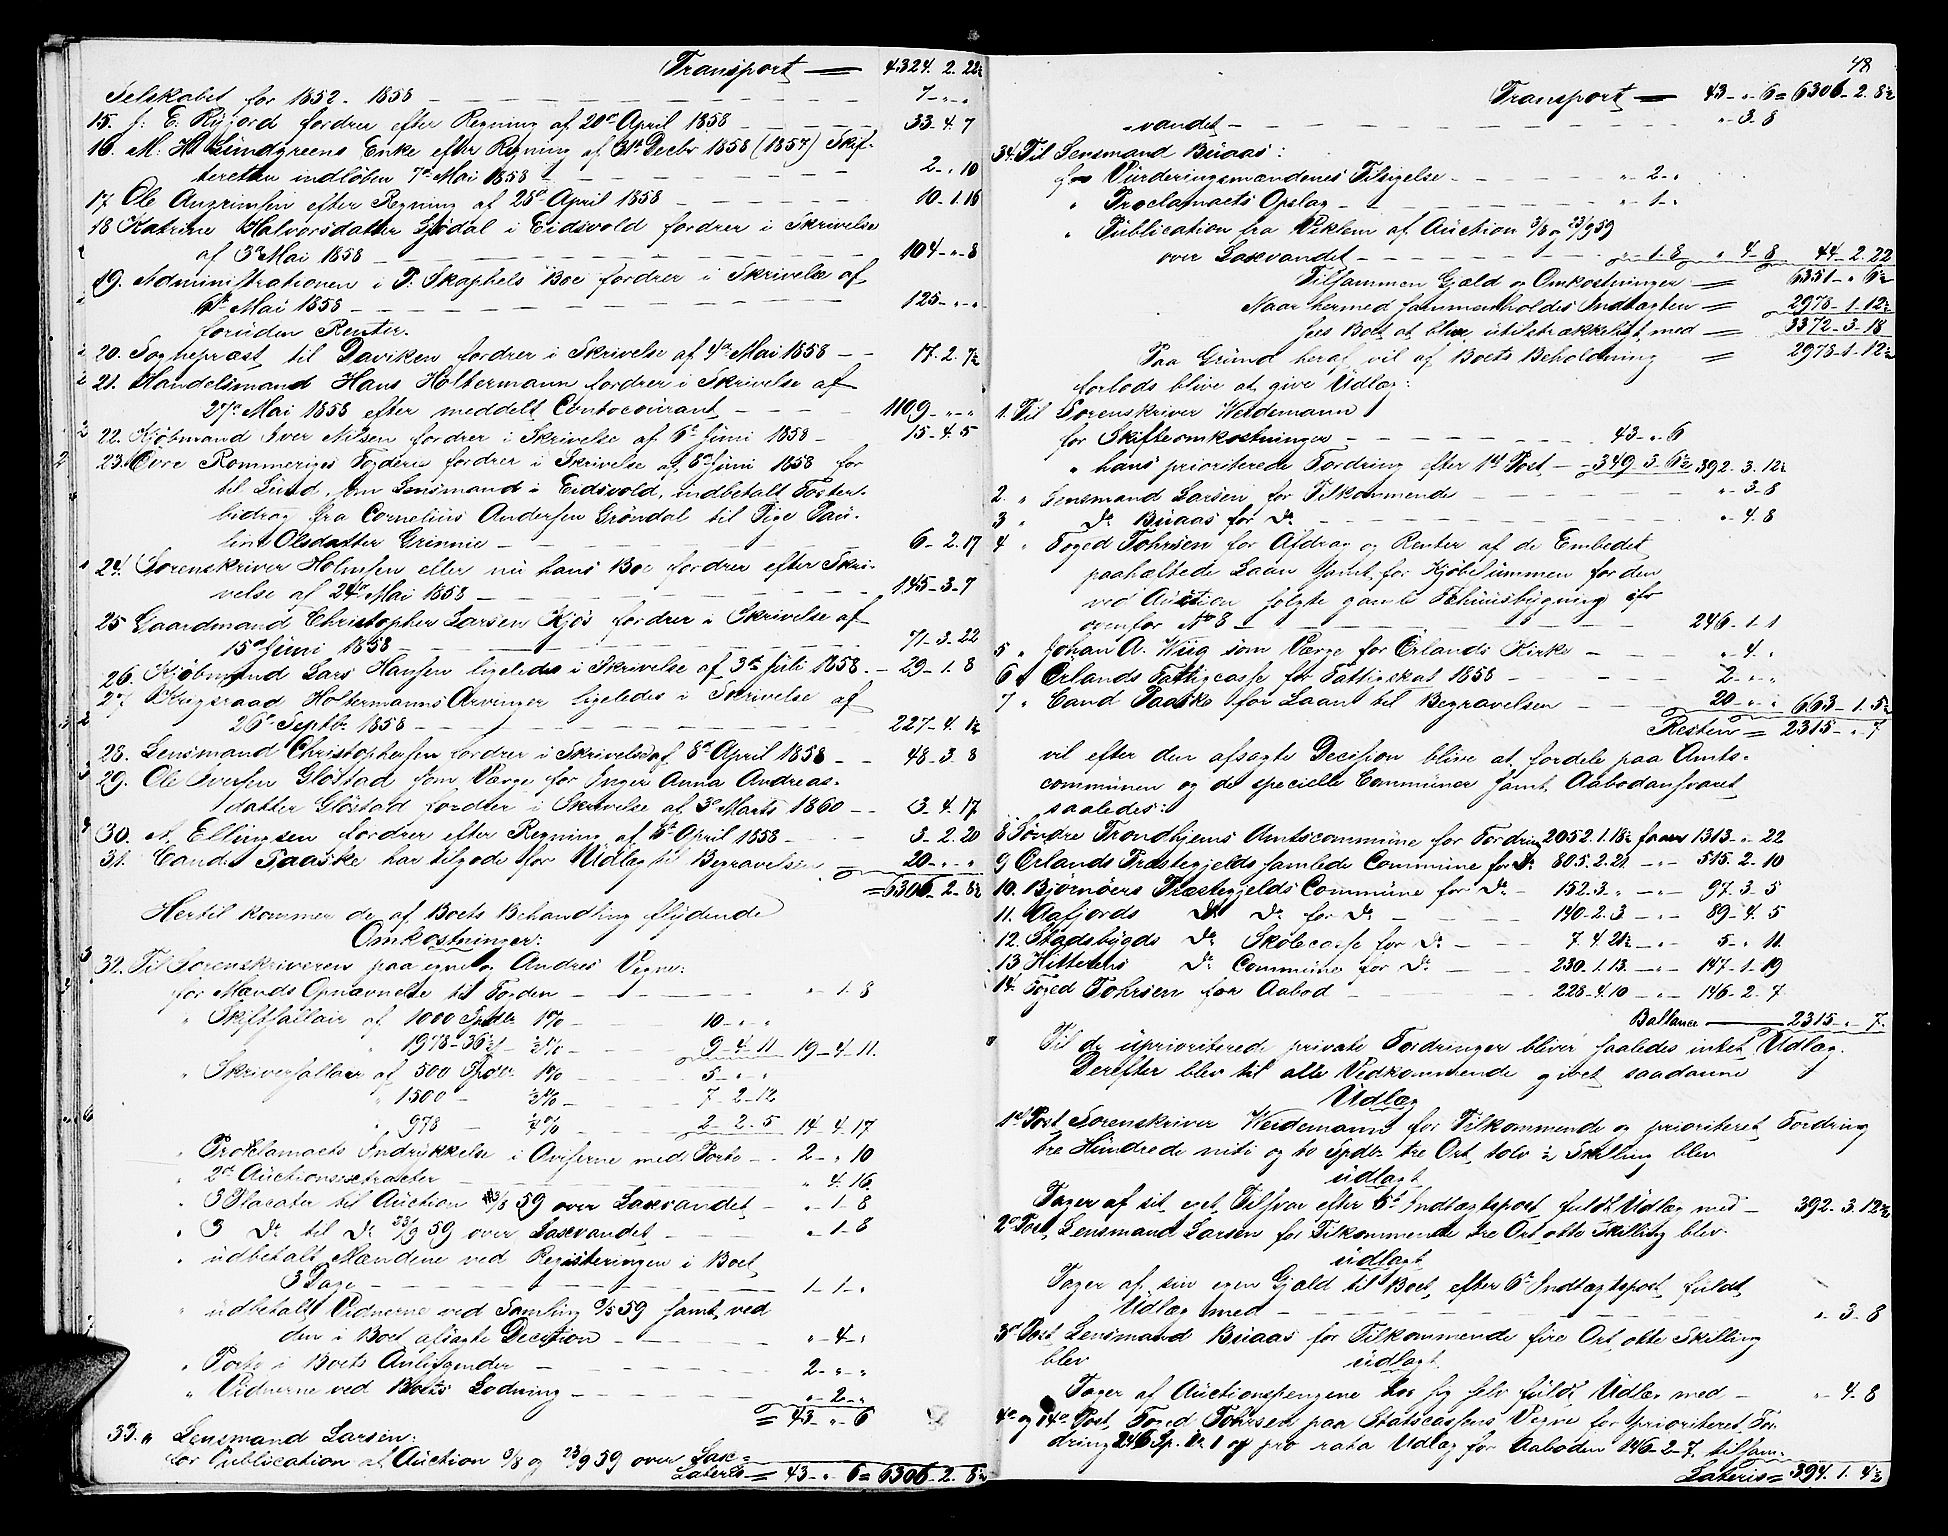 Transport — 4324. 2. 22½
Selskabet for 1852-1858 — 7 - " - "
15. J. E. Rifjord fordrer efter Regning af 20de April 1858 — 33. 4. 7
16. M. H. Lundgreens Enke efter Regning af 31te Decbr 1858 (1857) Skif-
teretten indløben 7de Mai 1858 — 2 - " 10
17. Ole Anzrimsen efter Regning af 28de April 1858 — 10. 1. 16
18 Katrine Halvorsdatter Gjødal i Eidsvold fordrer i Skrivelse
af 3de Mai 1858 — 104 - " - 8
19. Administrationen i P. Skaphels Boe fordrer i Skrivelse af
6te Mai 1858 — 125 - " - "
foruden Renter.
20. Sognepræst til Daviken fordrer i Skrivelse af 4de Mai 1858 — 17. 2. 7½
21. Handelsmand Hans Holtermann fordrer i Skrivelse af
27de Mai 1858 efter meddelt Contocourant — 1109 - " - "
22. Kjøbmand Iver Nilsen fordrer i Skrivelse af 6te Juni 1858 — 15. 4. 5
23. Øvre Rommeriges Fogderie fordrer i Skrivelse af 8de Juni 1858 for
til Lund, som Lensmand i Eidsvold, indbetalt Foster-
bidrag fra Cornelius Andersen Grøndal til Pige Pau-
line Olsdatter Grinnie — 6 - 2. 17
24. Sorenskriver Holmsen eller nu hans Boe fordrer efter Skri-
velse af 24de Mai 1858 — 145 - 3 - 7
25 Gaardmand Christopher Larsen Kjøs fordrer i Skrivelse af
15de Juni 1858 — 71 - 3. 22
26. Kjøbmand Lars Hansen ligeledes i Skrivelse af 3de Juli 1858. — 29 - 1. 8
27 Krigsraad Holtermanns Arvinger ligeledes i Skrivelse af
26de Septbr 1858 — 227. 4. 1½
28. Lensmand Christophersen fordrer i Skrivelse af 8de April 1858 — 48. 3. 8
29. Ole Iversen Gløstad som Værge for Inger Anna Andreas-
datter Gløstad fordrer i Skrivelse af 3de Marts 1860 — 13. 4. 17
30. A. Ellingsen fordrer efter Regning af 6te April 1858 — 3. 2. 20
31. Cand. Paaske har tilgode for Udlæg til Begravelsen — 20 - " - "
= 6306. 2. 8½
Hertil kommer de af Boets Behandling flydende
Omkostninger:
32. Til Sorenskriveren paa egne og Andres Vegne:
for Mænds Opnævnelse til Fogden — " - 1. 8
" Skiftsallair af 1000 Spdlr 1% — 10 - " - "
1978-36½ ½% — 9. 4. 11 19 - 4 - 11.
" Skriversallair af 500 Spdlr 1% — 5 - " - "
" 1500 - ½% — 7. 2. 12
" 978 - ¼% — 2. 2. 5 14. 4. 17
" Proklamaets Indrykkelse i Aviserne med Porto — 2 - " 10
" 2de Auctionsextracter — " 4. 16.
" 3 Placater til Auction 3/8 59 over Laxevandet — " - 1 - 8
" 3 Do til Do 23/9 59 over Laxevandet — " - 1 - 8
" udbetalt Mændene ved Registeringen i Boet
3 Dage — 1 - 1 - "
" udbetalt Vidnerne ved Samling 9/5 59 samt ved
den i Boet afsagte Decision — " - 4 - "
" Porto i Boets Anliggender — 2 - " - "
" Vidnerne ved Boets Slutning — " - 2 - "
= 43 - " - 6
33. " Lensmand Larsen:
for Publication af Auction 3/8 og 23/9 59 over Laxe-
Lateris = 43 - " 6 = 6306 - 2. 8½
48
Transport — 43 - " 6 = 6306 - 2. 8½
-vandet — " - 3. 8
34. Til Lensmand Buaas:
for Vurderingsmændenes Tilsigelse — " - 2 - "
" Proclamaets Opslag — " - 1 - "
" Publication fra Viklem af Auction 3/8 og 23/9 59
over Laxevandet — " - 1. 8 " 4 - 8 44 - 2. 22
Tilsammen Gjæld og Omkostninger = 6351 - " 6½
Naar hermed sammenholdes Indtægten = 2978 - 1. 12½
sees Boet at blive utilstrækkeligt med = 3372 - 3. 18
Paa Grund heraf vil af Boets Beholdning = 2978 - 1. 12½
forlods blive at give Udlæg:
1. Til Sorenskriver Weidemann
for Skifteomkostninger — 43 - " 6
" hans prioriterede Fordring efter 1ste Post — 349. 3. 6½ 392. 3. 12½
2. " Lensmand Larsen for Tilkommende — " - 3 - 8
3 " Do Buaas for Do — " - 4. 8
4 " Foged Tohrsen for Afdrag og Renter af de Embedet
paahæftede Laan samt for Kjøbesummen for den
ved Auction solgte gamle Fehuusbygning cfr
ovenfor No 8 — 246 - 1. 1
5 " Johan A. Wiig som Værge for Ørlands Kirke — " 4. "
6 " Ørlands Fattigcasse for Fattigskat 1858 — 2 - " - "
7 " Cand Paaske for Laan til Begravelsen — 20 - " - " 663 - 1. 5½
Resten = 2315 - " 7
vil efter den afsagte Decision blive at fordele paa Amts-
communen og de specielle Communer samt Aabodansvaret
saaledes:
8 Søndre Trondhjems Amtscommune for Fordring 2052. 1. 18½ faaer 1313. " 22
9 Ørlands Præstegjelds samlede Commune for Do 805. 2. 21 - " - 515. 2. 10
10. Bjørnøers Præstegjelds Commune for Do — 152. 3. " - " - 97. 3. 5
11. Aafjords Do Do for Do — 140. 2. 3 - " - 89. 4. 5
12. Stadsbygds Do Skolecasse for Do — 7. 4. 21½ - " - 5 - " 11.
13 Hitterens Do Commune for Do — 230. 1. 13. - " - 147 - 1. 19
14. Foged Tohrsen for Aabod — 228. 4. 10 - " - 146. 2. 7
Ballance — 2315. " 7.
Til de uprioriterede private Fordringer bliver saaledes intet Udlæg.
Derefter blev til alle Vedkommende givet saadanne
Udlæg
1ste Post Sorenskriver Weidemann for Tilkommende og prioriteret Fordring
tre Hundrede niti og to Spdlr tre Ort tolv ½ Skilling blev
udlagt
Tager af sit eget Tilsvar efter 5te Indtægtspost fuldt Udlæg med — 392. 3. 12½
2den Post, Lensmand Larsen for Tilkommende tre Ort otte Skilling blev
udlagt
Tager af sin egen Gjæld til Boet, efter 6te Indtægtspost fuldt
Udlæg med — " - 3 - 8
3die Post Lensmand Buaas for Tilkommende fire Ort otte Skilling
blev udlagt
Tager af Auctionspengene hos sig selv fuldt Udlæg med — " - 4 - 8
4de og 14de Post, Foged Tohrsen paa Statscassens Vegne for prioriteret For-
dring 246 Sp. 1 - 1 og pro rata Udlæg for Aaboden 146 - 2 - 7, tilsam-
Lateris = 394. 1. 4½